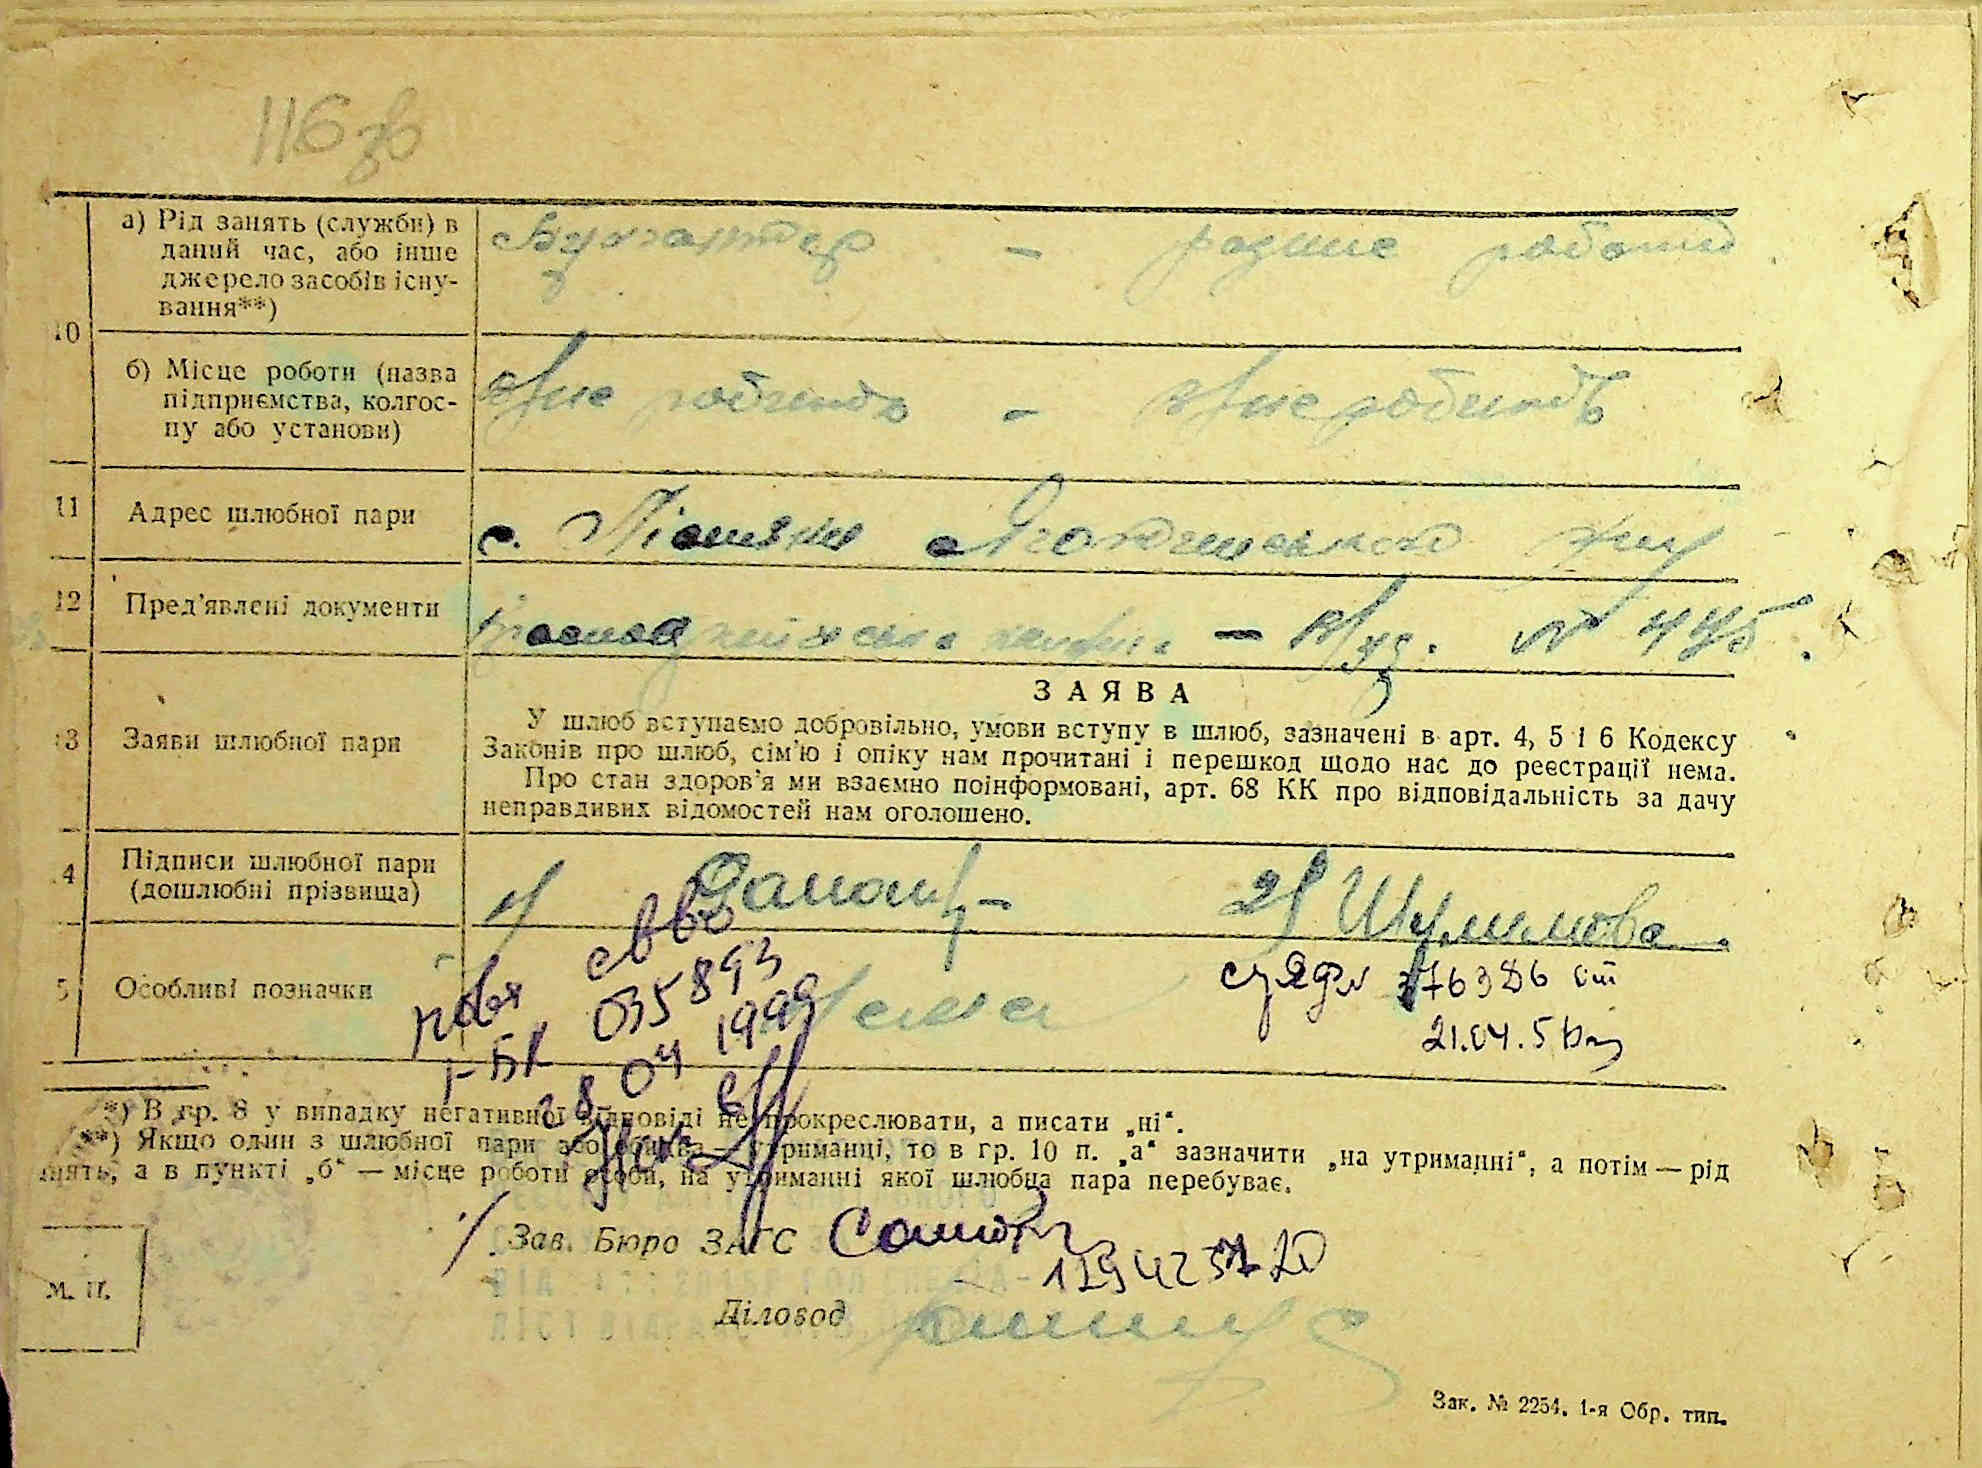 116 зв
а) Рід занять (служби) в
даний час, або інше
джерело засобів існу-
вання**)
Бухгалтер – різние работи
10
б) Місце роботи (назва
підприємства, колгос-
пу або установи)
Не робить – Не робить
11 Адрес шлюбної пари
с. Пісчанка
12 Пред'явлені документи
– № 445
13 Заяви шлюбної пари
ЗАЯВА
У шлюб вступаємо добровільно, умови вступу в шлюб, зазначені в арт. 4, 5 і 6 Кодексу
Законів про шлюб, сім'ю і опіку нам прочитані і перешкод щодо нас до реєстрації нема.
Про стан здоров'я ми взаємно поінформовані, арт. 68 КК про відповідальність за дачу
неправдивих відомостей нам оголошено.
14 Підписи шлюбної пари
(дошлюбні прізвища)
1) 2) Шумилова
5 Особливі позначки
Нема
повт свво
І-БК 035893
28 04 1999
376386
21.04.5
*) В гр. 8 у випадку негативної відповіді не прокреслювати, а писати „ні“.
**) Якщо один з шлюбної пари або обидва — утриманці, то в гр. 10 п. „а“ зазначити „на утриманні“, а потім — рід
занять, а в пункті „б“ — місце роботи особи, на утриманні якої шлюбна пара перебуває.
Зав. Бюро ЗАГС
М. П.
Діловод
Зак. № 2254. 1-я Обр. тип.